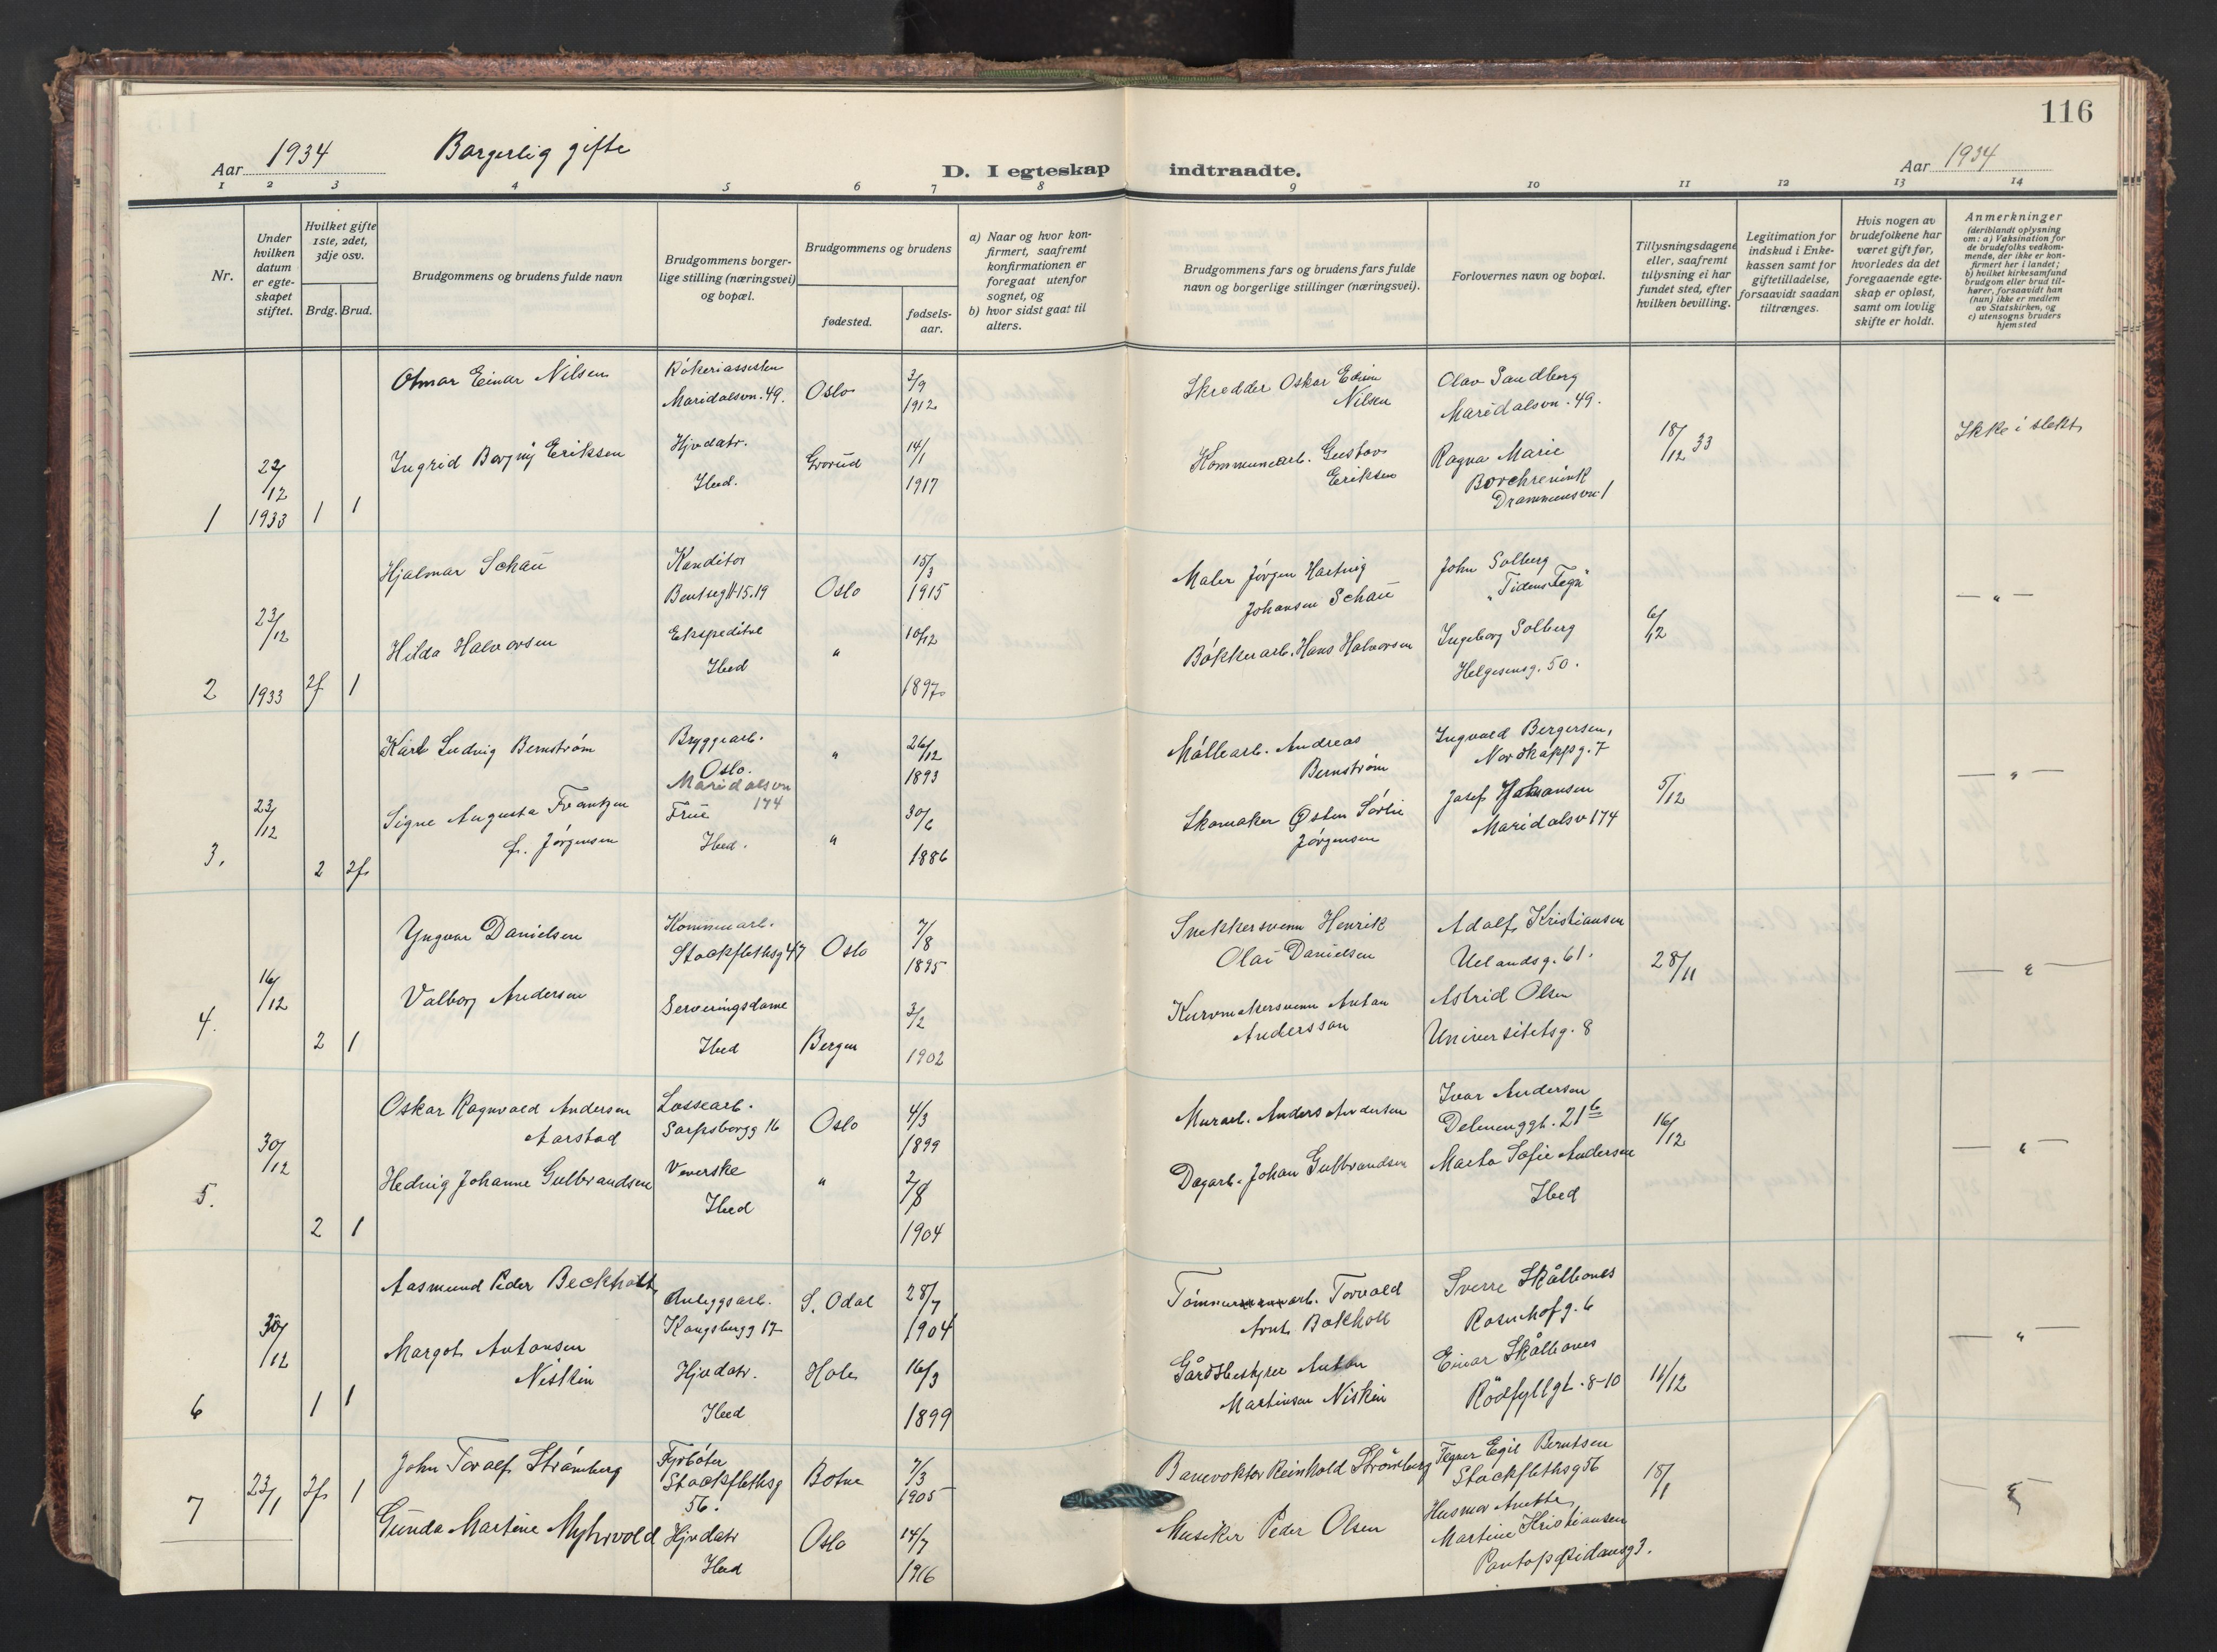 116
Aar 1934
Borgerlig gifte
D. I egteskap
indtraadte.
Aar 1934
1 2 3 4 5 6 7 8 9 10 11 12 13 14
Nr.
Under hvilken datum er egteskapet stiftet.
Hvilket gifte 1ste, 2det, 3dje osv.
Brdg. Brud.
Brudgommens og brudens fulde navn
Brudgommens borgerlige stilling (næringsvei) og bopæl.
Brudgommens og brudens
fødested.
fødselsaar.
a) Naar og hvor konfirmert, saafremt konfirmationen er foregaat utenfor sognet, og
b) hvor sidst gaat til alters.
Brudgommens fars og brudens fars fulde navn og borgerlige stillinger (næringsvei).
Forlovernes navn og bopæl.
Tillysningsdagene eller, saafremt tillysning ei har fundet sted, efter hvilken bevilling.
Legitimation for indskud i Enkekassen samt for giftetilladelse, forsaavidt saadan tiltrænges.
Hvis nogen av brudefolkene har været gift før, hvorledes da det foregaaende egteskap er opløst, samt om lovlig skifte er holdt.
Anmerkninger (deriblandt oplysning om: a) Vaksination for de brudefolks vedkommende, der ikke er konfirmert her i landet; b) hvilket kirkesamfund brudgom eller brud tilhører, forsaavidt han (hun) ikke er medlem av Statskirken, og c) utensogns bruders hjemsted
1 22/12 1933 1 1
Otmar Einar Nilsen
Maridalsvn. 49. Oslo 3/9 1912
Skredder Oskar Edvin Nilsen
Olav Sandberg
Maridalsvn. 49.
Ingrid Borgny Eriksen
Hjvdatr.
Ibed. Grorud 14/1 1917
Kommunearb. Gustav Eriksen
Ragna Marie
Drammensvn. 1
18/12 33
Ikke i slekt
2 23/12 1933 2f 1
Hjalmar Schau
Konditor
Oslo 15/3 1915
Maler Jørgen Hartvig Johansen Schau
John Solberg
"Tidens Tegn"
Hilda Halvorsen
Ibed " 10/12 1897
Bøkkerarb. Hans Halvorsen
Ingeborg Solberg
Helgesensg. 50.
6/12
— " —
3. 23/12 2 2f
Karl Ludvig Bernstrøm
Bryggearb.
Oslo.
Maridalsvn 174
" 26/12 1893
Møllearb. Andreas Bernstrøm
Ingvald Bergersen,
Nordkappg. 7
Signe Augusta Frantzen
f. Jørgensen
Frue
Ibed. " 30/6 1886
Skomaker Østen Sørlie Jørgensen
Josef Johansen
Maridalsv 174
5/12
— " —
4. 16/12 2 1
Yngvar Danielsen
Kommunearb.
Stockflethsg 47 Oslo 7/8 1895
Snekkersvenn Henrik Olai Danielsen
Adolf Kristiansen
Uelandsg. 61.
Valborg Andersen
Serveringsdame
Ibed Bergen 3/2 1902
Kurvmakersvenn Anton Andersson
Astrid Olsen
Universitetsg. 8
28/11
— " —
5. 30/12 2 1
Oskar Ragnvald Andersen Aarstad
Lossearb.
Sarpsborgg 16 Oslo 4/3 1899
Murarb. Anders Andersen
Ivar Andersen
Delenenggt. 21 b
Hedvig Johanne Gulbrandsen
Veverske
Ibed " 2/8 1904
Dagarb. Johan Gulbrandsen
Marta Sofie Andersen
Ibed
16/12
— " —
6 30/12 1 1
Aasmund Peder Beckholt
Anleggsarb.
Kongsbergg 17 S. Odal 28/7 1904
Tømmerarb. Torvald Arnt Bokholt
Sverre Skålbones
Rosenhofg. 6
Margot Antonsen Niskin
Hjvdatr.
Ibed Hole 16/3 1899
Gårdsbestyrer Anton Martinsen Niskin
Einar Skålbones
Rødfyllgt. 8-10
11/12
— " —
7 23/1 2f 1
John Toralf Strømberg
Fyrbøter
Stockflethsg 56. Botne 7/3 1905
Banevokter Reinhold Strømberg
Tegner Egil Berntsen
Stockflethsg 56
Gunda Martine Myhrvold
Hjvdatr
Ibed Oslo 14/7 1916
Musiker Peder Olsen
Husmor Anette Martine Kristiansen
18/1